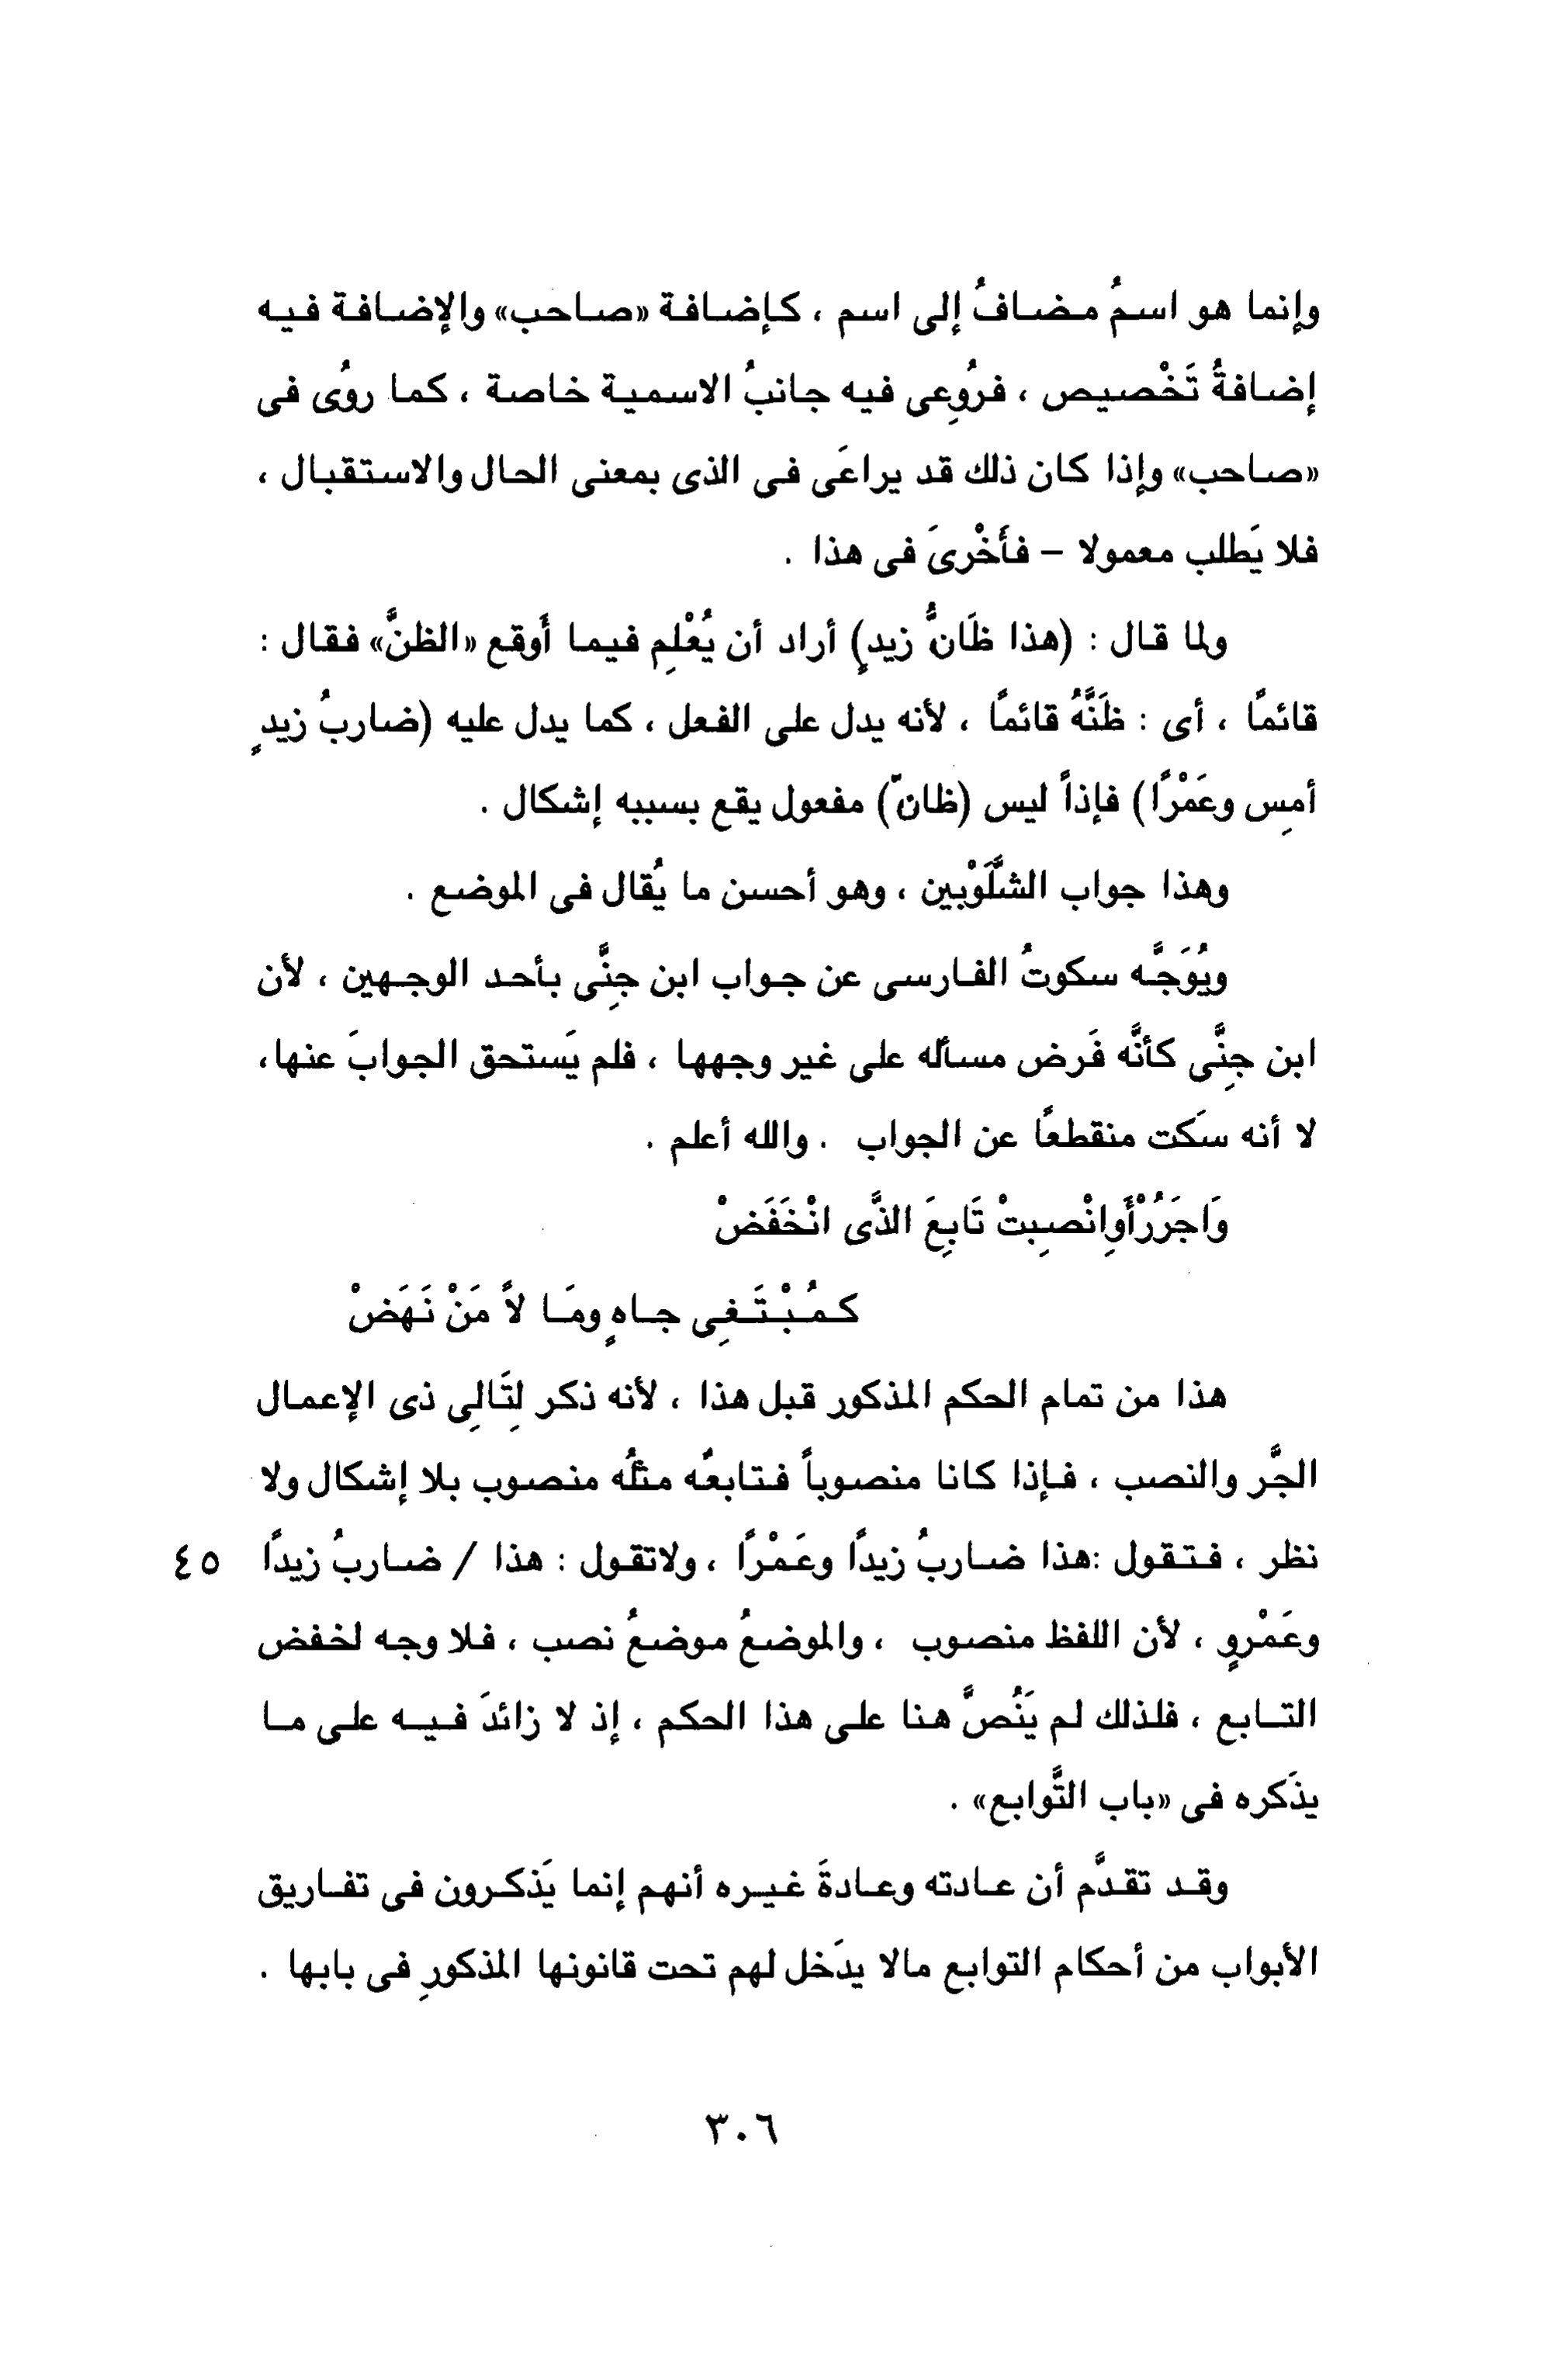 وإنما هو اسمُ مضافُ إلى اسم ، كإضافة «صاحب» والإضافة فيه
إضافةُ تَخْصيص ، فرُوعِى فيه جانبُ الاسمية خاصة ، كما روُى فى
«صاحب» وإذا كان ذلك قد يراعَى فى الذى بمعنى الحال والاستقبال ،
فلا يَطلب معمولا – فأَخْرىَ فى هذا .
ولما قال : (هذا ظَانُّ زيدٍ) أراد أن يُعْلِم فيما أَوقع «الظنَّ» فقال :
قائماً ، أى : ظَنَّهُ قائماً ، لأنه يدل على الفعل ، كما يدل عليه (ضاربُ زيدٍ
أمسِ وعَمْرًا) فإذاً ليس (ظانّ) مفعول يقع بسببه إشكال .
وهذا جواب الشَّلَوْبين ، وهو أحسن ما يُقال فى الموضع .
ويُوَجَّه سكوتُ الفارسى عن جواب ابن جِنَّى بأحد الوجهين ، لأن
ابن جِنَّى كأنَّه فَرض مسأله على غير وجهها ، فلم يَستحق الجوابَ عنها،
لا أنه سَكت منقطعاً عن الجواب . والله أعلم .
وَاجَرُرْأَوِانْصِبتْ تَابِعَ الذَّى انْخَفَضْ
كمُبْتَغِى جاهٍ ومَا لاً مَنْ نَهَضْ
هذا من تمام الحكم المذكور قبل هذا ، لأنه ذكر لِتَالِى ذى الإعمال
الجَّر والنصب ، فإذا كانا منصوباً فتابعُه مثلُه منصوب بلا إشكال ولا
نظر ، فتقول :هذا ضاربُ زيداً وعَمْرًا ، ولاتقول : هذا / ضاربُ زيداً ٤٥
وعَمْروٍ ، لأن اللفظ منصوب ، والموضعُ موضعُ نصب ، فلا وجه لخفض
التابع ، فلذلك لم يَنُصَّ هنا على هذا الحكم ، إذ لا زائدَ فيه على ما
يذَكره فى «باب التَّوابع» .
وقد تقدَّم أن عادته وعادةَ غيره أنهم إنما يَذكرون فى تفاريق
الأبواب من أحكام التوابع مالا يدَخل لهم تحت قانونها المذكورِ فى بابها .
٣٠٦